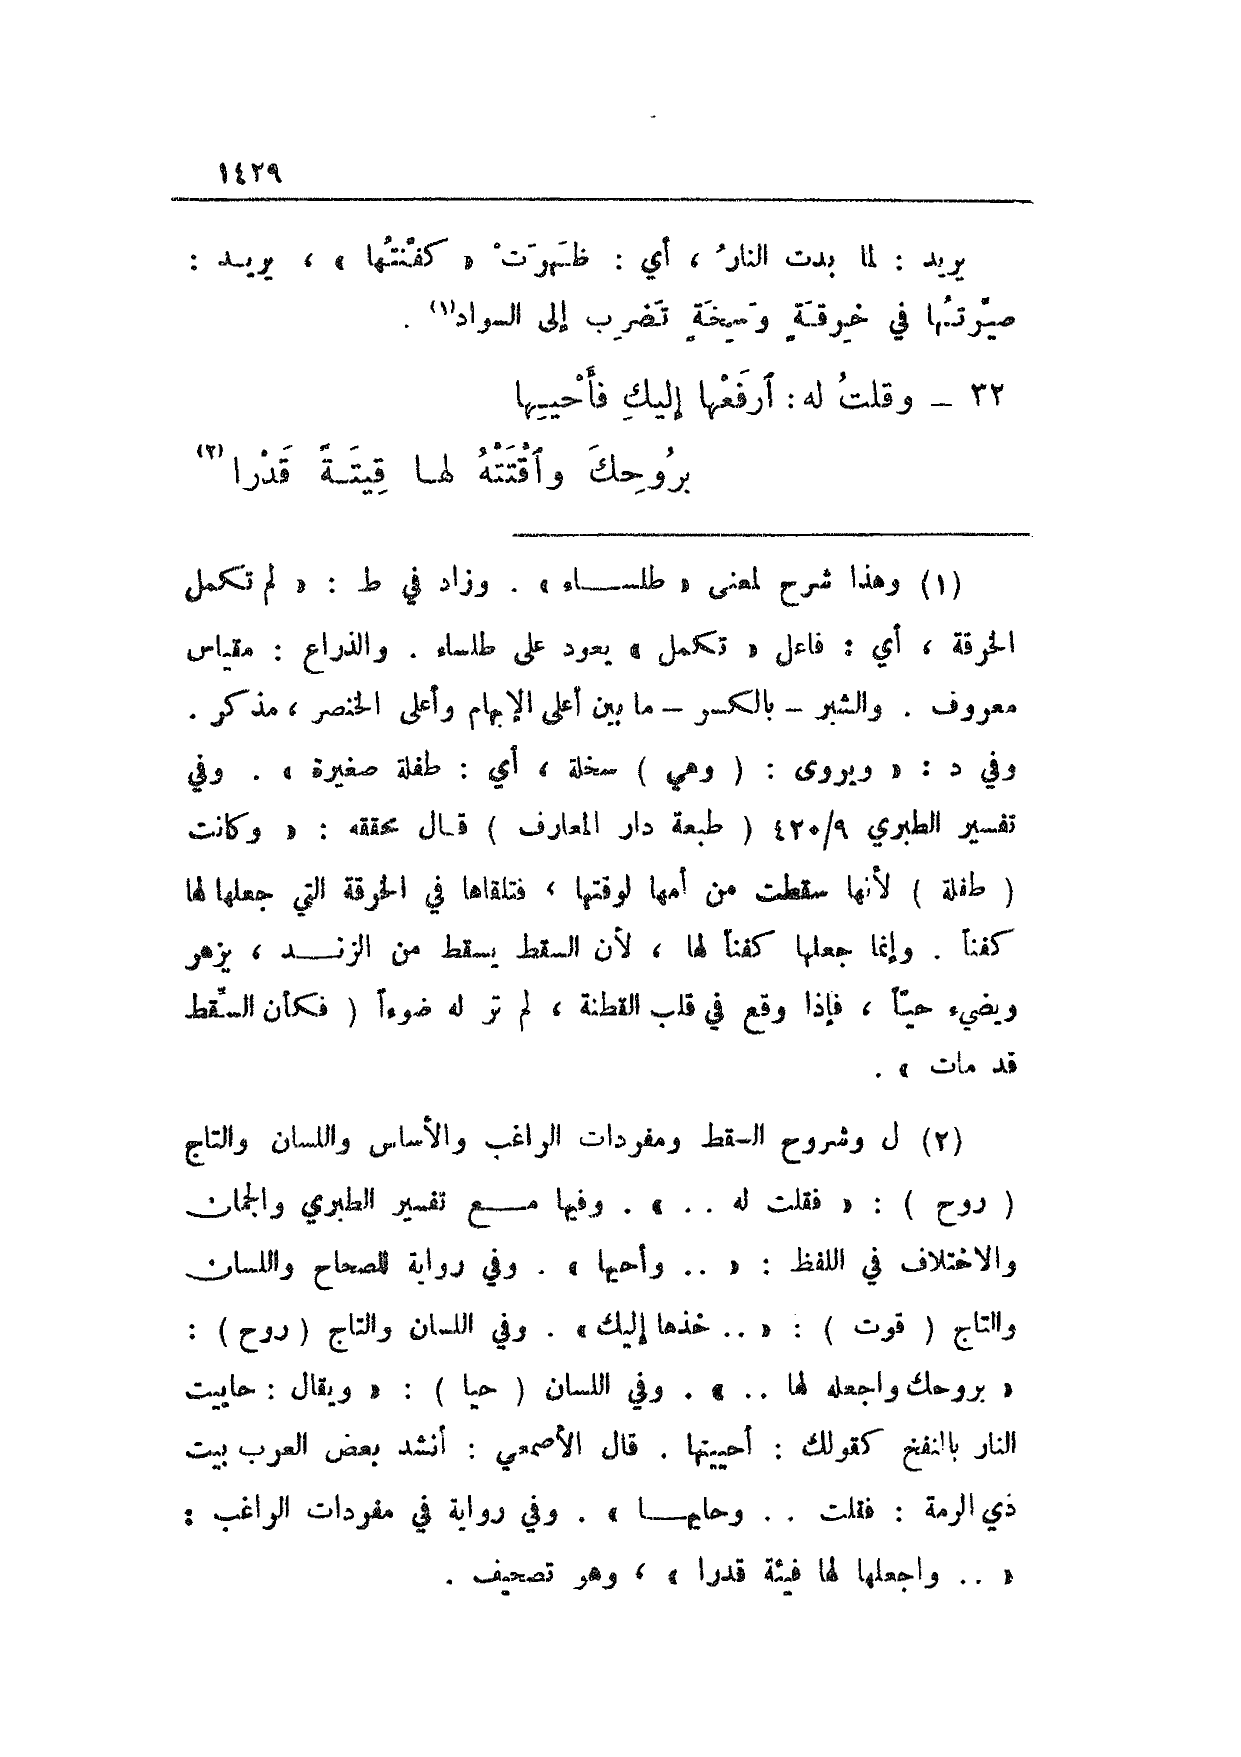 ١٤٢٩
يريد : لما بدت النارُ ، أي : ظَهرَتْ « كفَّنتُها » ، يريد :
صيَّرتُها في خِرقةٍ وَسِخَةٍ تَضرِب إلى السواد(١) .
٣٢ – وقلتُ له : ٱرفَعْها إليكِ فأَحْيِها
برُوحِكَ وٱقْتَتْهُ لها قِيتَةً قَدْرا (٢)
(١) وهذا شرح لمعنى « طلساء » . وزاد في ط : « لم تكمل
الخرقة ، أي : فاعل « تكمل » يعود على طلساء . والذراع : مقياس
معروف . والشبر – بالكسر – ما بين أعلى الإبهام وأعلى الخنصر ، مذكر .
وفي د : « ويروى : ( وهي ) سخلة ، أي : طفلة صغيرة » . وفي
تفسير الطبري ٤٢٠/٩ ( طبعة دار المعارف ) قال محققه : « وكانت
( طفلة ) لأنها سقطت من أمها لوقتها ، فتلقاها في الخرقة التي جعلها لها
كفناً . وإنما جعلها كفناً لها ، لأن السقط يسقط من الزند ، يزهر
ويضيء حيّاً ، فإذا وقع في قلب القطنة ، لم تر له ضوءاً ( فكأن السِّقط
قد مات » .
(٢) ل وشروح السقط ومفردات الراغب والأساس واللسان والتاج
( روح ) : « فقلت له . . » . وفيها مع تفسير الطبري والجمان
والاختلاف في اللفظ : « .. وأحيها » . وفي رواية للصحاح واللسان
والتاج ( قوت ) : « .. خذها إليك » . وفي اللسان والتاج ( روح ) :
« بروحك واجعله لها .. » . وفي اللسان ( حيا ) : « ويقال : حاييت
النار بالنفخ كقولك : أحييتها . قال الأصمعي : أنشد بعض العرب بيت
ذي الرمة : فقلت . . وحايها » . وفي رواية في مفردات الراغب :
« .. واجعلها لها فيئة قدرا » ، وهو تصحيف .